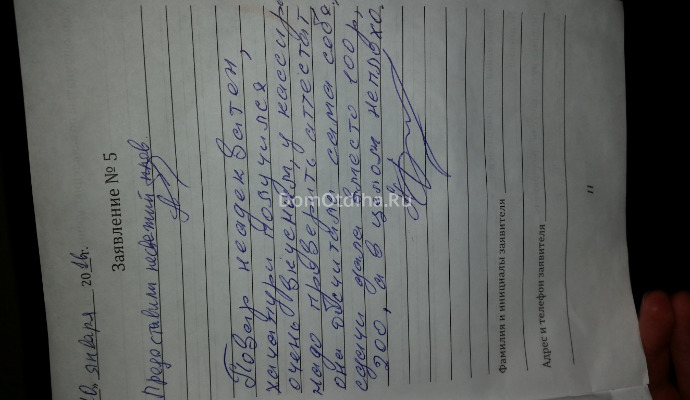 10 января 2016 г.
Заявление № 5
Предоставили несвежий плов.
Повар неадекватен,
хачапури получился
очень вкусным, у кассира
надо проверить аттестат
она обсчитала сама себя,
сдачи дала вместо 100 р,
200, а в целом неплохо.
Фамилия и инициалы заявителя
Адрес и телефон заявителя
11
DomOtdiha.Ru